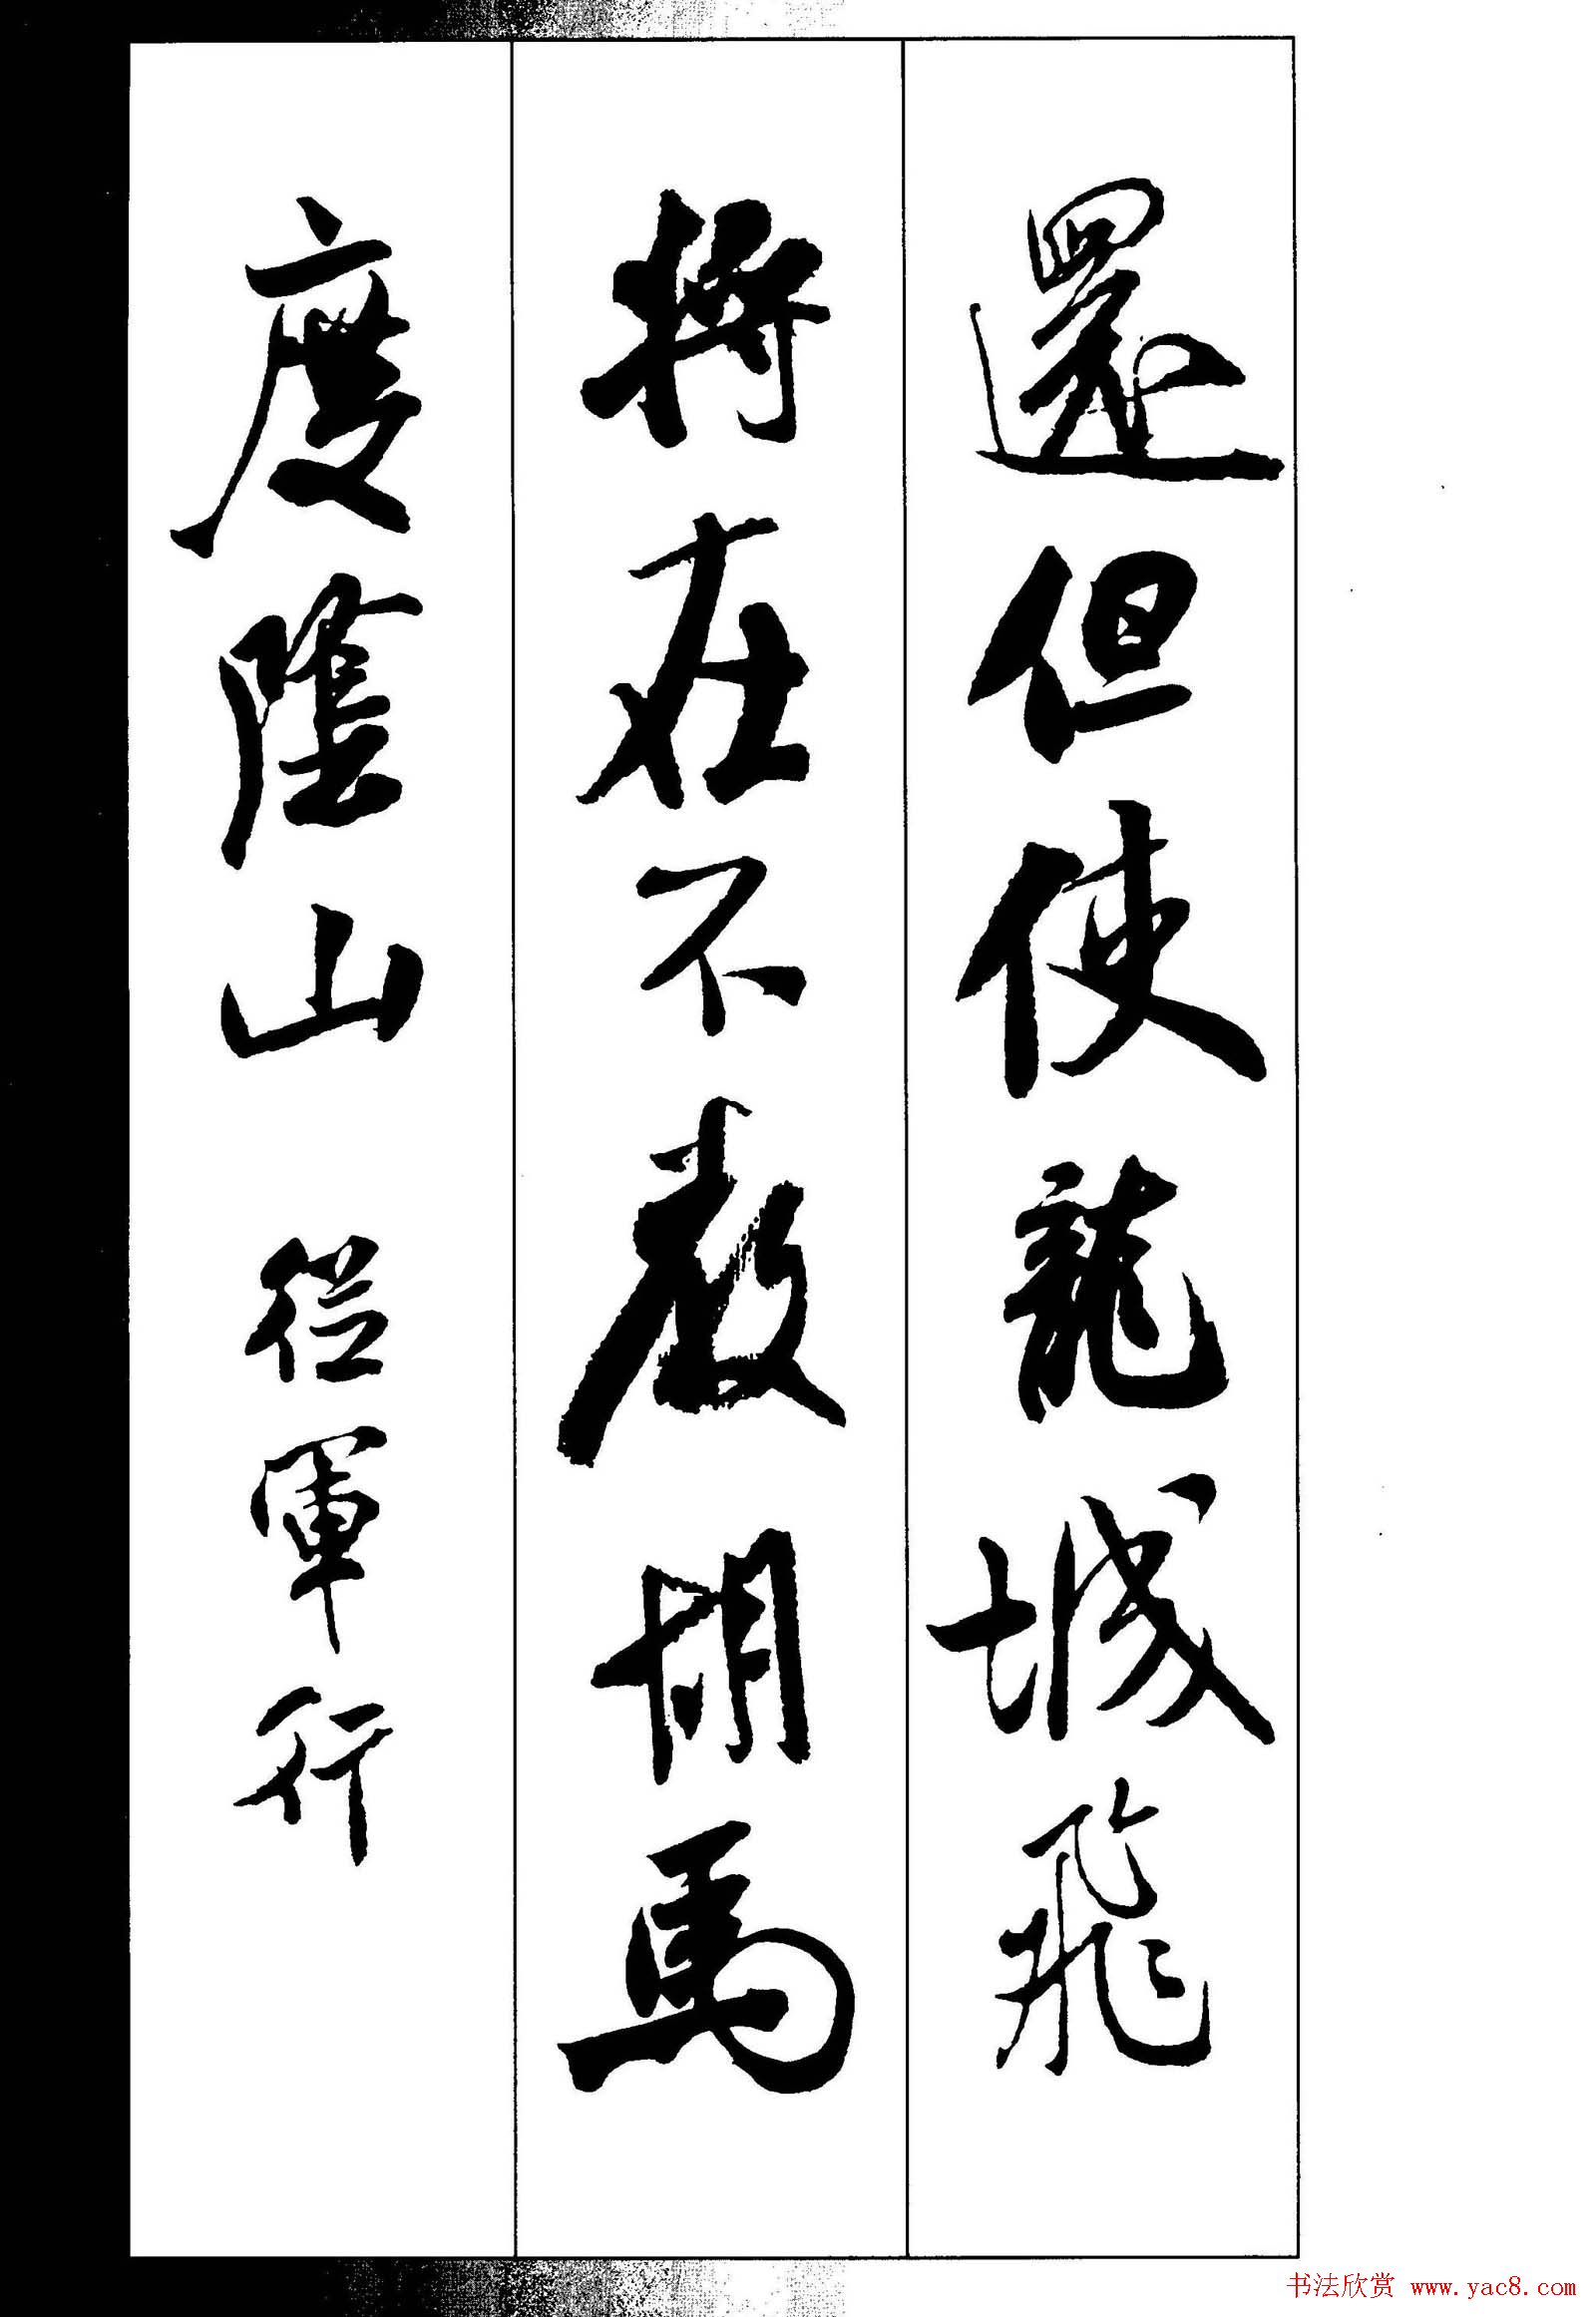 還但使龍城飛
將在不教胡馬
度陰山 從軍行
书法欣赏 www.yac8.com